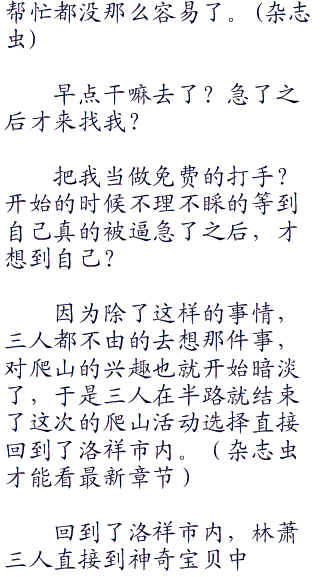 帮忙都没那么容易了。(杂志
虫)
早点干嘛去了？急了之
后才来找我？
把我当做免费的打手？
开始的时候不理不睬的等到
自己真的被逼急了之后，才
想到自己？
因为除了这样的事情，
三人都不由的去想那件事，
对爬山的兴趣也就开始暗淡
了，于是三人在半路就结束
了这次的爬山活动选择直接
回到了洛祥市内。（杂志虫
才能看最新章节）
回到了洛祥市内，林萧
三人直接到神奇宝贝中